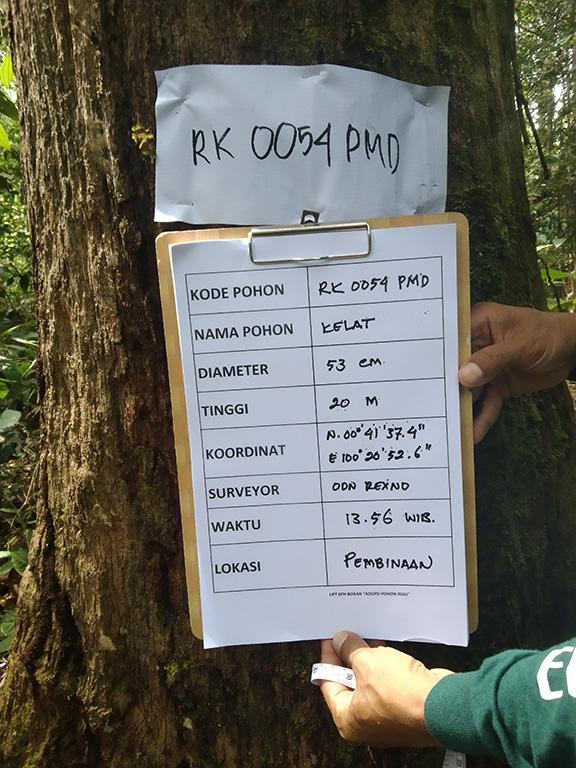 RK 0054 PMD
KODE POHON RK 0054 PMD
NAMA POHON KELAT
DIAMETER 53 cm
TINGGI 20 M
KOORDINAT N. 00° 41' 37.4"
E 100° 20' 52.6"
SURVEYOR ODN REXINO
WAKTU 13.56 WIB.
LOKASI PEMBINAAN
"ADOPSI POHON RIAU"